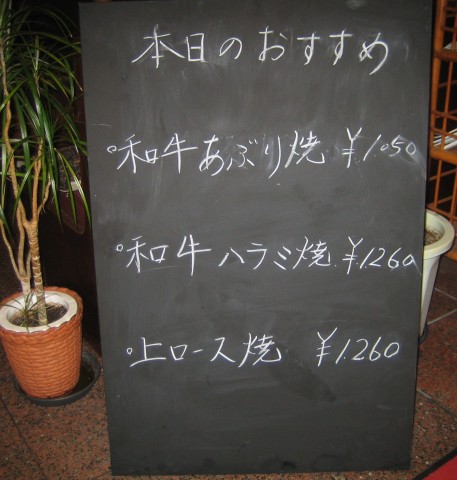 本日のおすすめ
○和牛あぶり焼 ¥1.050
○和牛ハラミ焼 ¥1.260
○上ロース焼 ¥1.260